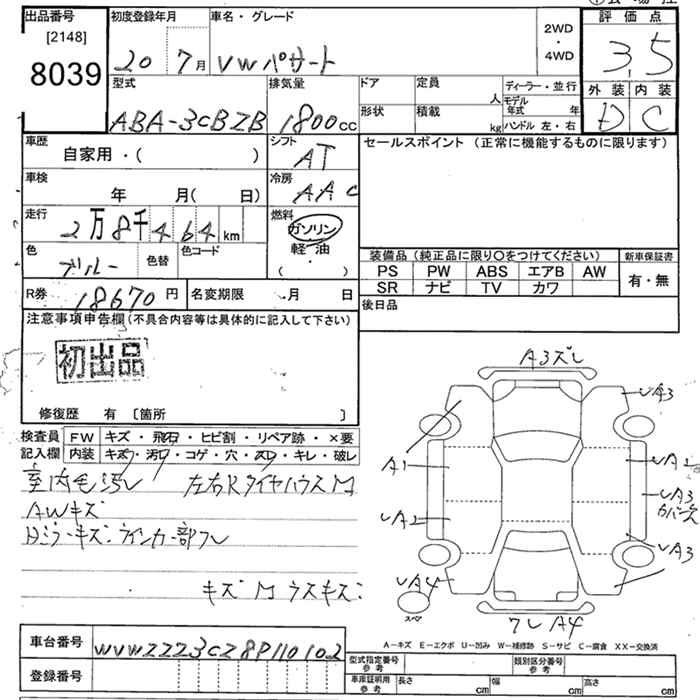 出品番号
[2148]
8039
初度登録年月
20 7月
車名・グレード
VW パサート
2WD
・
4WD
評価点
3.5
外装 内装
D C
型式
ABA-3CBZB
排気量
1800cc
ドア
定員
人
ディーラー・並行
モデル年式 年
形状
積載
kg
ハンドル 左・右
車歴
自家用・( )
シフト
AT
セールスポイント (正常に機能するものに限ります)
車検
年 月( 日)
冷房
AAC
走行
2万8千464km
燃料
ガソリン
軽・油
・
( )
色
ブルー
色替
色コード
装備品 (純正品に限り○をつけてください)
新車保証書
PS PW ABS エアB AW
SR ナビ TV カワ
有・無
R券
18670円
名変期限 ・月 日
後日品
注意事項申告欄(不具合内容等は具体的に記入して下さい)
初出品
修復歴 有 〔箇所 〕
検査員
記入欄
FW キズ・飛石・ヒビ割・リペア跡・×要
内装 キズ・汚レ・コゲ・穴・スレ・キレ・破レ
室内毛汚レ 左右Rタイヤハウス
AWキズ
Dミラーキズ ウインカー部ワレ
キズ
A3ズレ
UA3
A1
UA2
UA2
UA3
UA3
UA4
スペア
ワレA4
A－キズ E－エクボ U－凹み W－補修跡 S－サビ C－腐食 XX－交換済
車台番号
WVWZZZ3CZ8P110102
登録番号
型式指定番号
参考
類別区分番号
参考
車庫証明用
参考
長さ cm 幅 cm 高さ cm